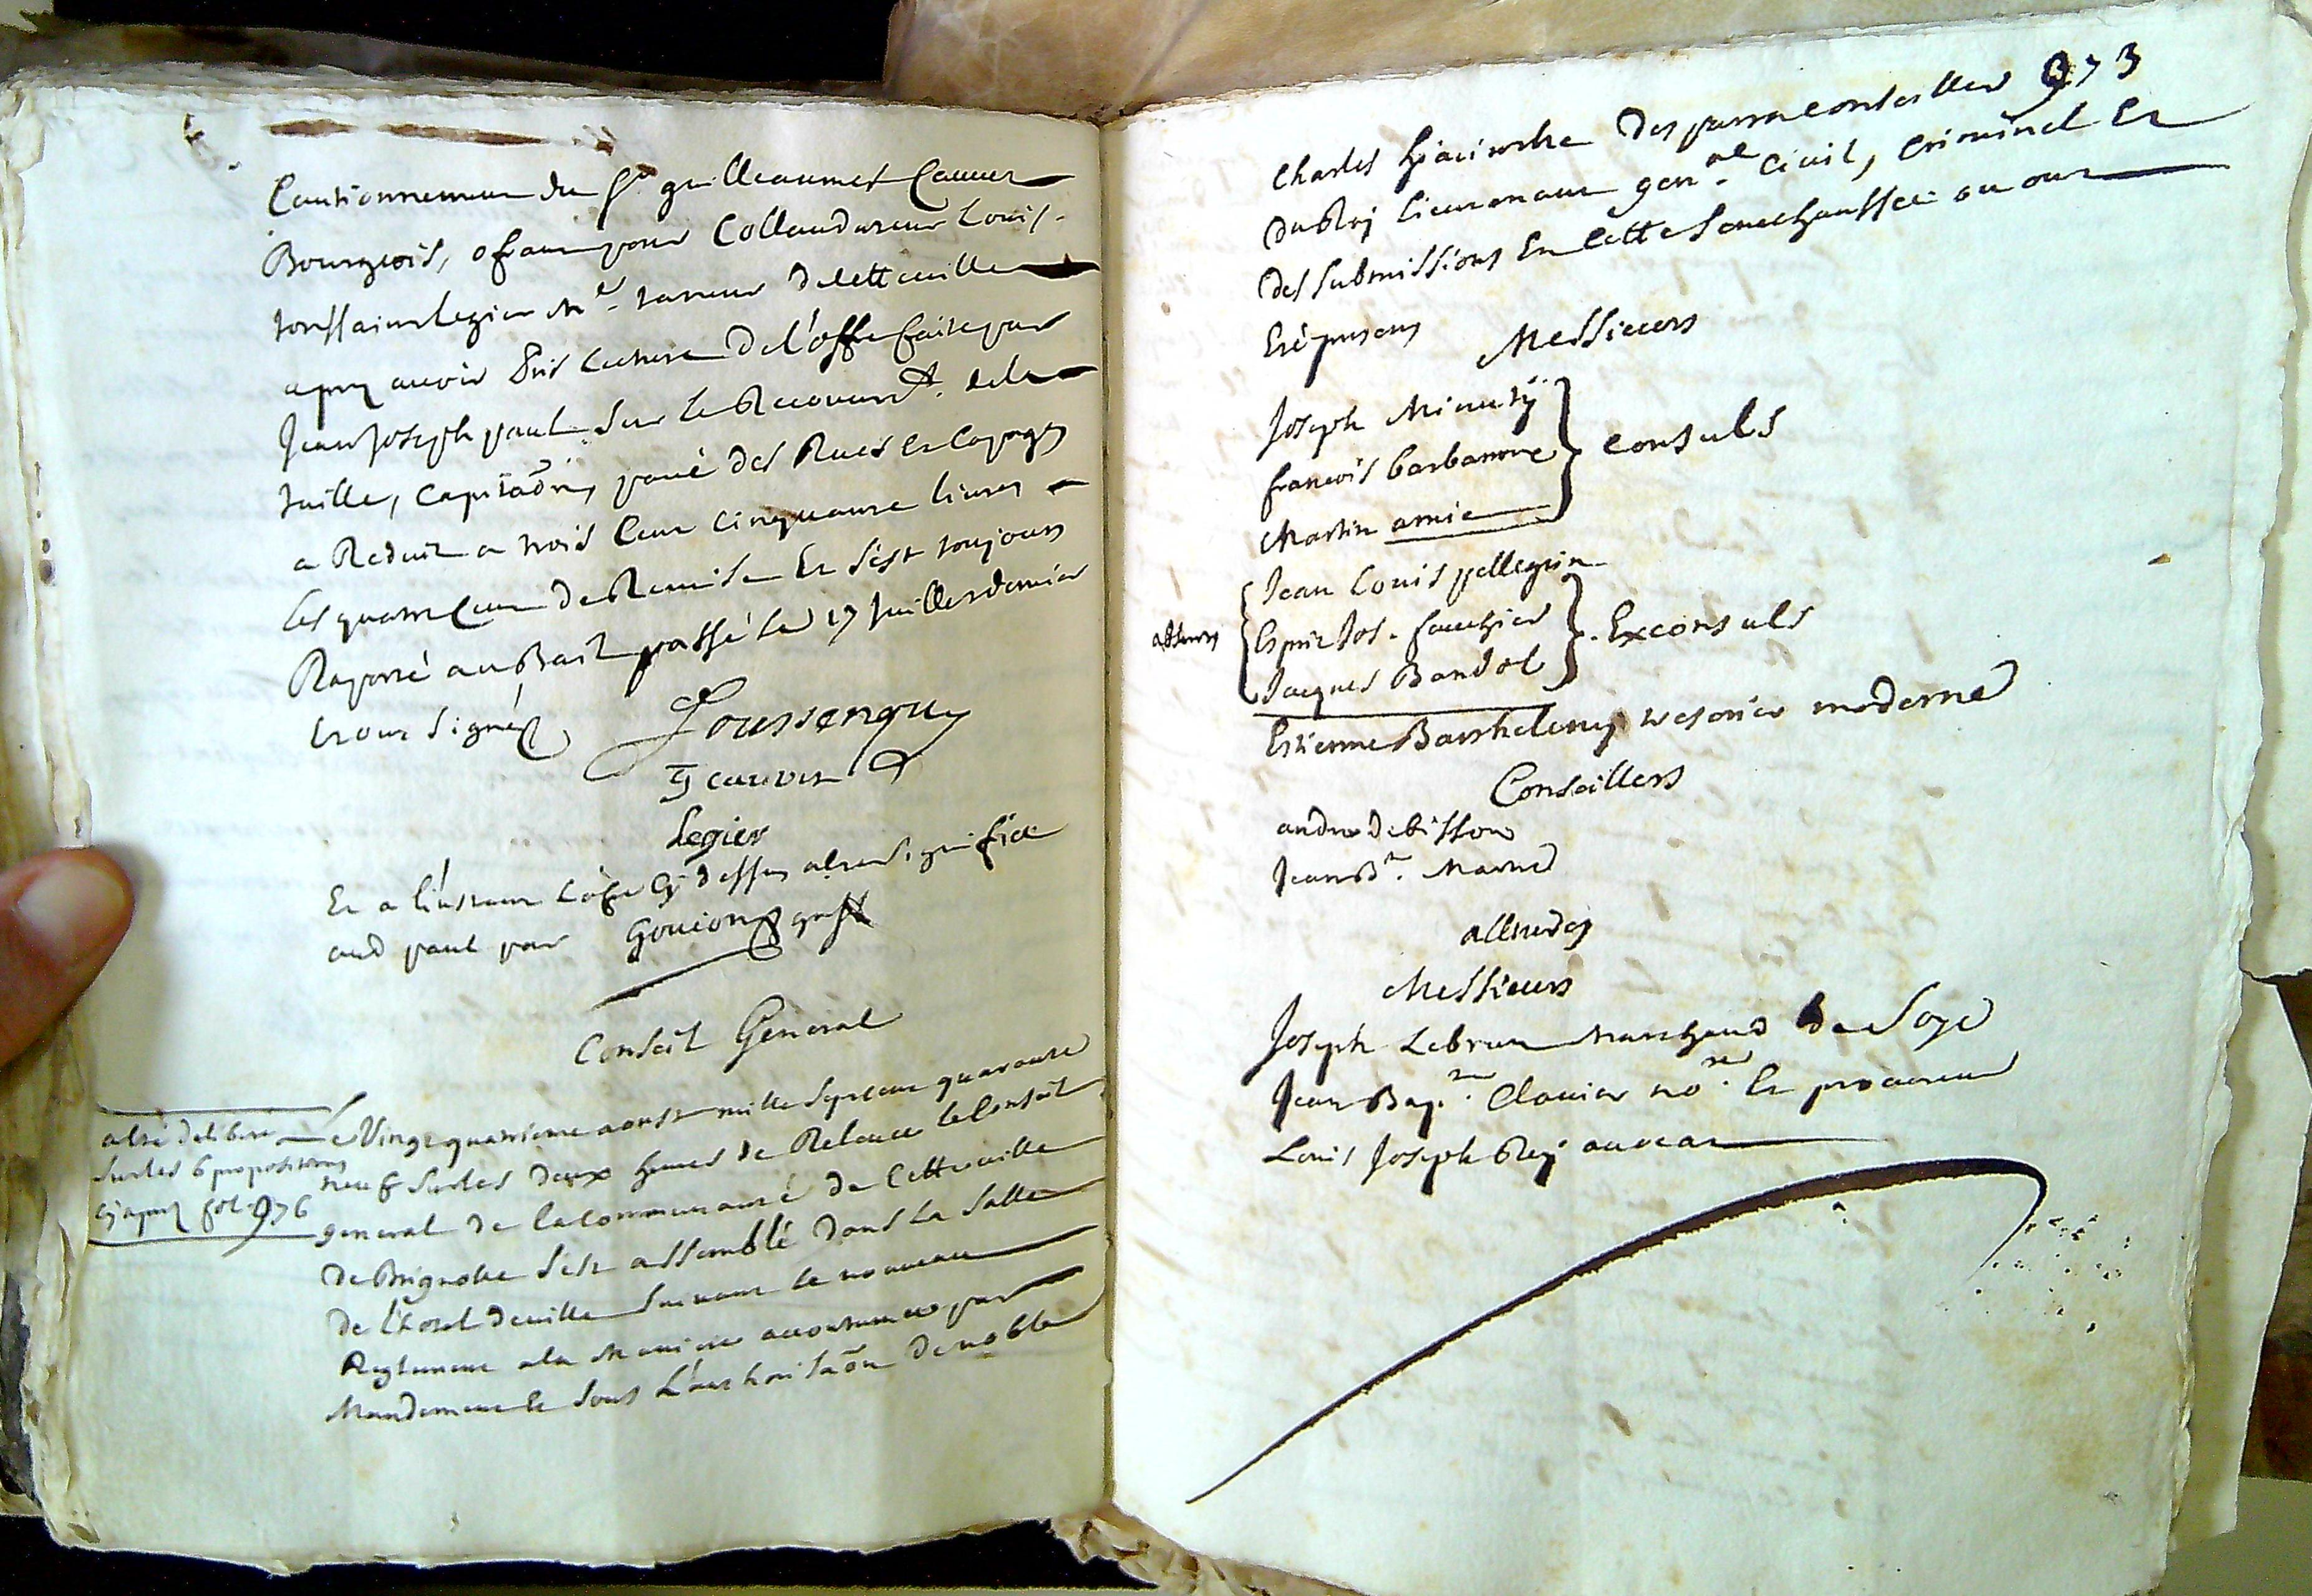 Cautionnement du Sr guilleaumes Cauvet
Bourgeois, ofrant pour Collaudateur Louis
toussaint legier me taneur de cette ville
apres avoir pris lecture de l'offre faite par
Jean Joseph paul sur le Recouvremt de la
taille, capitaõn, pavé des Rues et capages
a Reduit a trois Cent cinquante livres
les quatre Cent de Remise Et s'est toujours
Raporté au Bail passé le 17 Juillet dernier
et ont signés
Toussenquy
Cauvet
Legier
Et a l'instant l'ofre cy dessus a esté signifiée
aud paul par Goujon greff
Conseil General
a esté deliberé
sur les 6 propositions
cy apres fol. 976
Le Vingt quatrieme aoust mille sept cent quarante
neuf sur les deux heures de Relevée le Conseil
general de la communauté de Cette ville
de Brignolle s'est assemblé dans la Salle
de l'hotel de ville suivant le nouveau
Reglement a la Maniere accoutumée par
Mandement et sous l'authorisaõn de noble
973
Charles hiacinthe Desparra conseiller
du Roy lieutenant gen.al Civil, Criminel Et
des submissions En cette senechaussée ou ont
Eté presens
Messieurs
Joseph Minuty
francois barbarroux
Martin amic
consuls
absents
Jean Louis pellegrin
Esprit Jos. fauchier
Jacques Bandol
Exconsuls
Estienne Barthelemy tresorier moderne
Conseillers
andre debisson
Jean Bte. Marne
allivrés
Messieurs
Joseph Lebrun marchand de Soye
Jean Bap.te Clavier no.re Et procureur
Louis Joseph Rey avocat